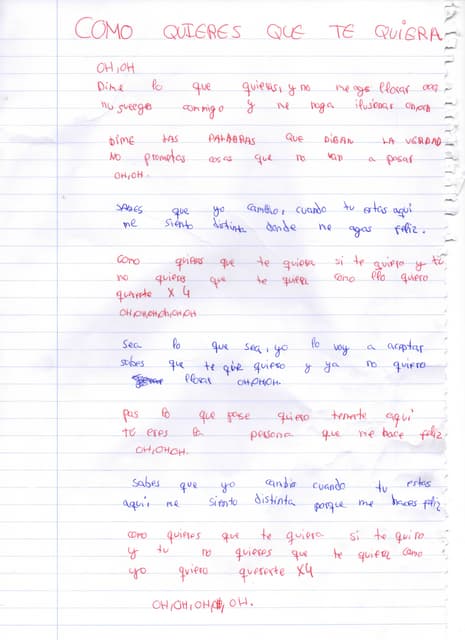 COMO QUIERES QUE TE QUIERA
OH,OH
Dime lo que quieras, y no me ags llorar ooo
nu juegges conmigo y me haga ilusionar
DIME LAS PALABRAS QUE DIGAN LA VERDAD
NO prometas cosas que no van a pasar
OH,OH.
SABES que yo cambio, cuando tu estas aquí
me siento distinta donde me agas feliz.
Como quieres que te quiera si te quiero y tú
no quieres que te quiera como llo quiero
quererte X4
OH,OH,OH,OH,OH,OH
Sea lo que sea, yo lo voy a aceptar
sabes que te que quiero y ya no quiero
llorar OH,OH,OH.
pas lo que pase quiero tenerte aquí
tú eres la persona que me hace feliz
OH,OH,OH.
Sabes que yo cambio cuando tu estas
aquí, me siento distinta porque me haces feliz
como quieres que te quiera si te quiro
y tu no quieres que te quiera como
yo quiero quererte X4
OH,OH,OH, OH.